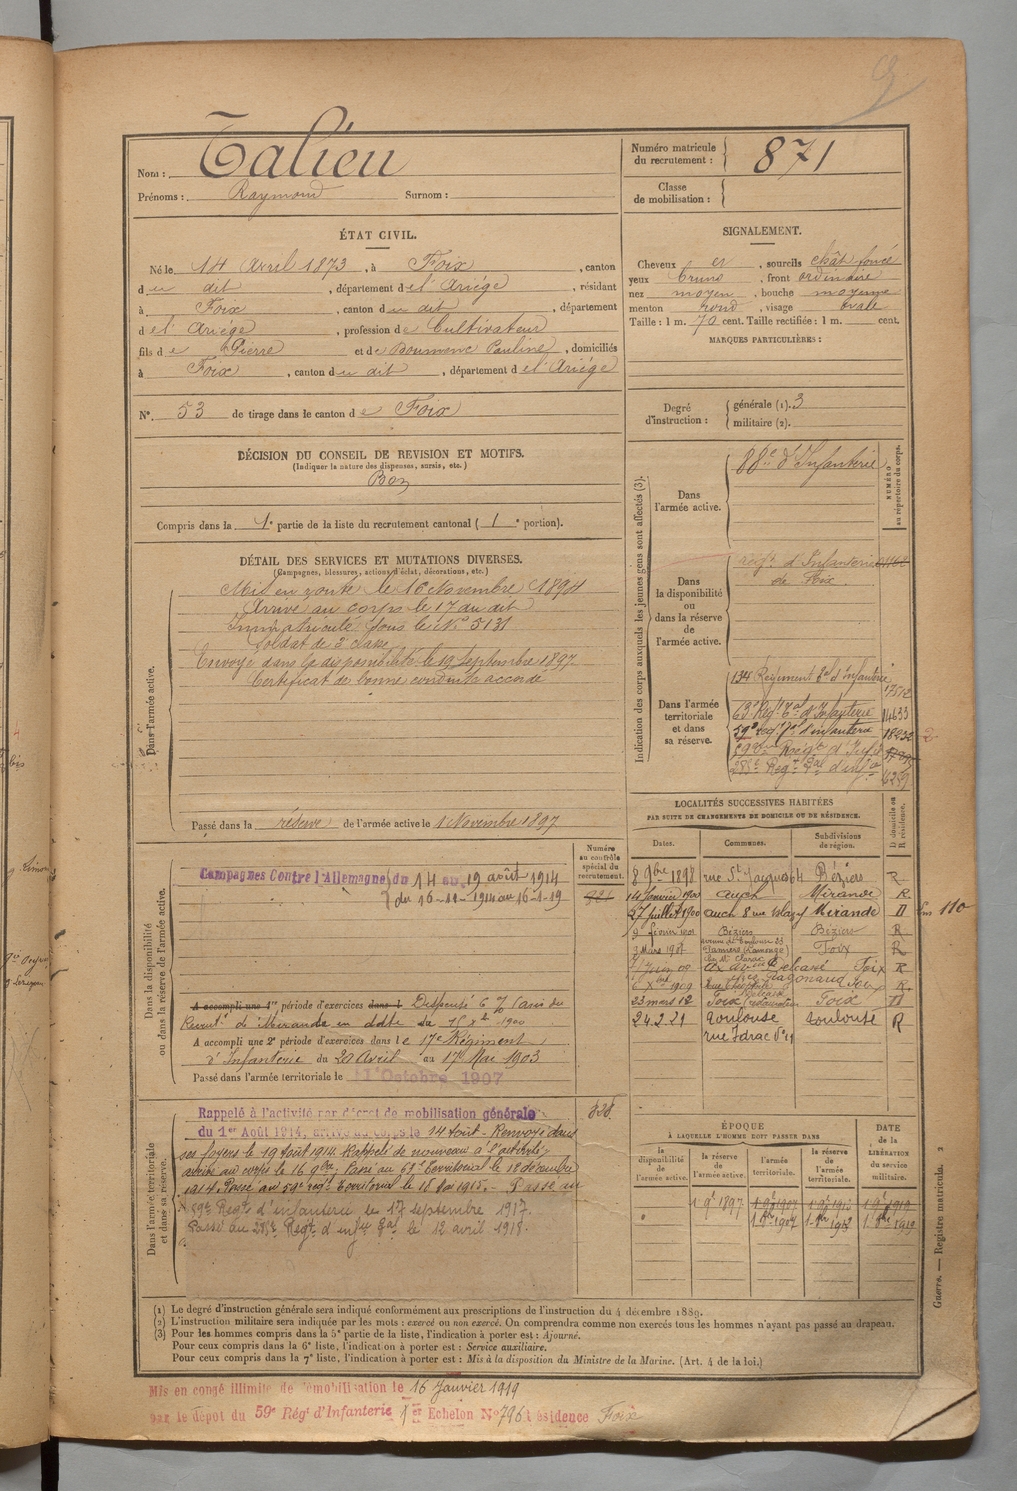 Nom : Talieu
Prénoms : Raymond Surnom :
Numéro matricule du recrutement : 871
Classe de mobilisation :
ÉTAT CIVIL.
Né le 14 Avril 1873, à Foix, canton
du dit, département de l'Ariége, résidant
à Foix, canton du dit, département
de l'Ariége, profession de Cultivateur
fils de Pierre et de Boumenc Pauline, domiciliés
à Foix, canton du dit, département de l'Ariége
N° 53 de tirage dans le canton de Foix
SIGNALEMENT.
Cheveux et, sourcils chât foncé
yeux bruns, front ordinaire
nez moyen, bouche moyenne
menton rond, visage ovale
Taille : 1 m. 70 cent. Taille rectifiée : 1 m. cent.
MARQUES PARTICULIÈRES :
Degré d'instruction : générale (1). 3
militaire (2).
DÉCISION DU CONSEIL DE REVISION ET MOTIFS.
(Indiquer la nature des dispenses, sursis, etc.)
Bon
Compris dans la 1e partie de la liste du recrutement cantonal (1e portion).
DÉTAIL DES SERVICES ET MUTATIONS DIVERSES.
(Campagnes, blessures, actions d'éclat, décorations, etc.)
Dans l'armée active.
Mis en route le 16 Novembre 1894
Arrivé au corps le 17 du dit
Immatriculé sous le N° 5131
Soldat de 2e classe
Envoyé dans la disponibilité le 19 Septembre 1897
Certificat de bonne conduite accordé
Passé dans la réserve de l'armée active le 1 Novembre 1897
Indication des corps auxquels les jeunes gens sont affectés (3).
NUMÉRO au répertoire du corps.
Dans l'armée active.
88e d'Infanterie
Dans la disponibilité ou dans la réserve de l'armée active.
Regt d'Infanterie
de Foix.
Dans l'armée territoriale et dans sa réserve.
134 Régiment Tal d'Infanterie
17512
63e Regt Tal d'Infanterie 14633
59e regt Tal d'infanterie
59e Regt d'Infie
283e Regt d'infie 6259
Numéro au contrôle spécial du recrutement.
Dans la disponibilité ou dans la réserve de l'armée active.
Campagnes Contre l'Allemagne du 14 au 19 août 1914
du 16-11-1914 au 16-1-19
A accompli une 1re période d'exercices dans l Dispensé
Recrut. de Mirande en date du 1900
A accompli une 2e période d'exercices dans le 17e Régiment
d'Infanterie du 20 Avril au 17 Mai 1903
Passé dans l'armée territoriale le 1er Octobre 1907
LOCALITÉS SUCCESSIVES HABITÉES
PAR SUITE DE CHANGEMENTS DE DOMICILE OU DE RÉSIDENCE.
Dates. Communes. Subdivisions de région. D domicile ou R résidence.
8 9bre 1898 rue St Jacques 64 Béziers R
14 Janvier 1900 Auch Mirande R
27 Juillet 1900 Auch 8 rue Mirande D
9 février 1901 Béziers Béziers R
3 Mars 1907 Foix R
Juin 08 Ax Foix R
1909 R
23 mars 12 Foix Foix D
24.2.21 Toulouse Toulouse R
rue Idrac
110
Dans l'armée territoriale et dans sa réserve.
Rappelé à l'activité par décret de mobilisation générale
du 1er Août 1914, arrivé au corps le 14 août - Renvoyé dans
ses foyers le 19 août 1914 Rappelé de nouveau à l'activité,
arrivé au corps le 16 9bre, Passé au 63e Territorial le 18 décembre
1914. Passé au 59e regt Territorial le 15 Mai 1915. - Passé au
59e Regt d'infanterie le 17 septembre 1917.
Passé au 283e Regt d'inf le 12 avril 1918.
828
ÉPOQUE
À LAQUELLE L'HOMME DOIT PASSER DANS
la disponibilité de l'armée active. la réserve de l'armée active. l'armée territoriale. la réserve de l'armée territoriale. DATE de la LIBÉRATION du service militaire.
1 9bre 1897
(1) Le degré d'instruction générale sera indiqué conformément aux prescriptions de l'instruction du 4 décembre 1889.
(2) L'instruction militaire sera indiquée par les mots : exercé ou non exercé. On comprendra comme non exercés tous les hommes n'ayant pas passé au drapeau.
(3) Pour les hommes compris dans la 5e partie de la liste, l'indication à porter est : Ajourné.
Pour ceux compris dans la 6e liste, l'indication à porter est : Service auxiliaire.
Pour ceux compris dans la 7e liste, l'indication à porter est : Mis à la disposition du Ministre de la Marine. (Art. 4 de la loi.)
Guerre. — Registre matricule. 2
Mis en congé illimité de démobilisation le 16 Janvier 1919
par le dépôt du 59e Régt d'Infanterie 1er Echelon N° 796 Résidence Foix